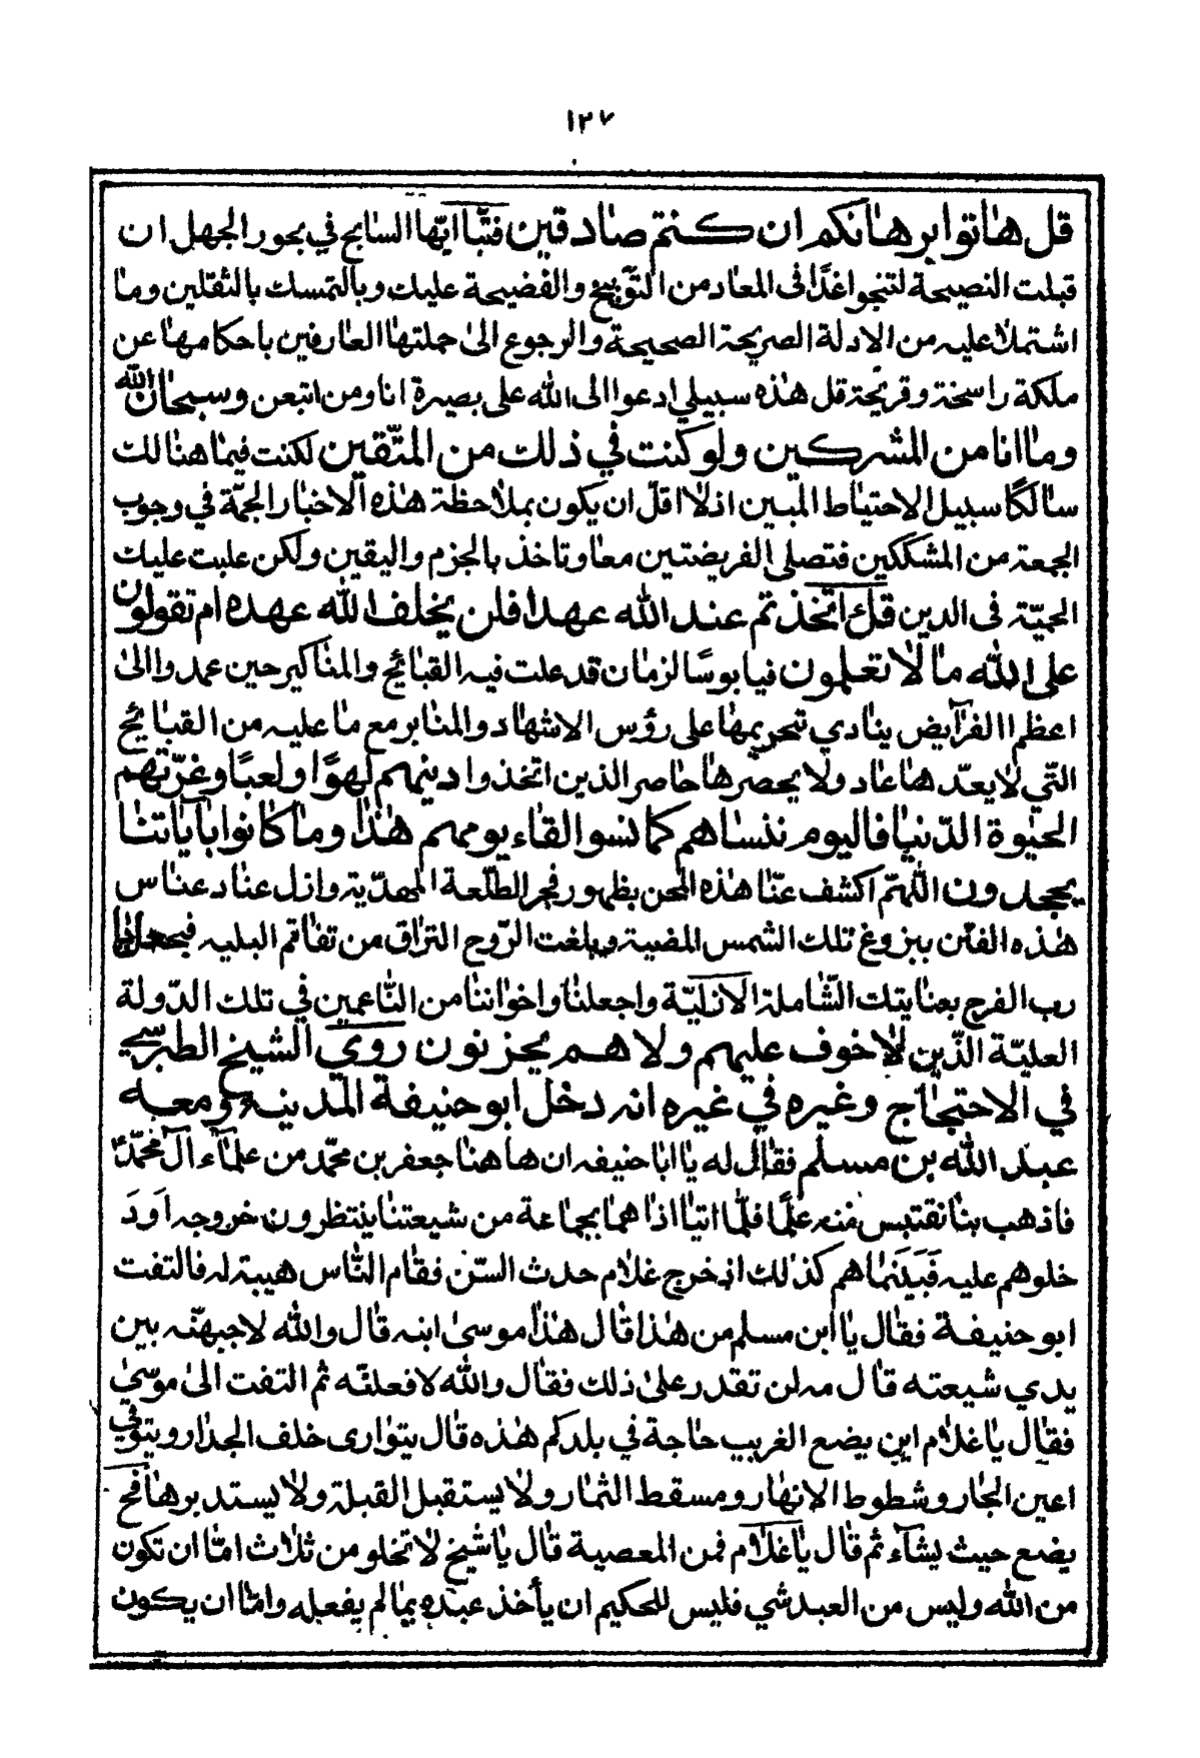 ١٢٧
قل هاتوا برهانكم ان كنتم صادقين فتب ايها السابح في بحور الجهل ان
قبلت النصيحة لتنجوا غدًا فى المعاد من التوبيخ والفضيحة عليك وبالتمسك بالثقلين وما
اشتملا عليه من الادلة الصريحة الصحيحة والرجوع الى حملتها العارفين باحكامها عن
ملكة راسخة وقريحة قل هذه سبيلي ادعوا الى الله على بصيرة انا ومن اتبعن وسبحان الله
وما انا من المشركين ولو كنت في ذلك من المتّقين لكنت فيما هنالك
سالكًا سبيل الاحتياط المبين اذ لا اقلّ ان يكون بملاحظة هذه الاخبار الجمّة في وجوب
الجمعة من المشككين فتصلى الفريضتين معا وتاخذ بالجزم واليقين ولكن غلبت عليك
الحميّة فى الدين قل اتخذتم عند الله عهدا فلن يخلف الله عهده ام تقولون
على الله ما لا تعلمون فيا بوسًا لزمان قد علت فيه القبائح والمناكير حين عمدوا الى
اعظم الفرآيض ينادي بتحريمها على رؤس الاشهاد والمنابر مع ما عليه من القبائح
التّي لا يعدّها عاد ولا يحصرها حاصر الذين اتخذوا دينهم لهوًا ولعبًا وغرّتهم
الحيوة الدّنيا فاليوم ننساهم كما نسوا لقاء يومهم هذا وما كانوا بآياتنا
يجحدون اللهّم اكشف عنّا هذه المحن بظهور فجر الطلعة المهديّة وازل عناد عناس
هذه الفتن ببزوغ تلك الشمس المضيية وبلغت الرّوح التراق من تفاقم البليه فعجل لنا
رب الفرج بعنايتك الشّاملة الازليّة واجعلنا واخواننا من النّاعمين في تلك الدّولة
العليّة الذّين لا خوف عليهم ولا هم يحزنون روى الشيخ الطبرسي
في الاحتجاج وغيره في غيره انه دخل ابو حنيفة المدينة ومعه
عبد الله بن مسلم فقال له يا ابا حنيفه ان هاهنا جعفر بن محّمد من علمآء آل محّمد
فاذهب بنا نقتبس منه علمًا فلمّا اتيا اذا هما بجماعة من شيعتنا ينتظرون خروجه اَودَ
خلوهم عليه فَبَينَما هم كذلك اذ خرج غلام حدث السّن فقام النّاس هيبة له فالتفت
ابو حنيفة فقال يا ابن مسلم من هذا قال هذا موسى ابنه قال والله لاجبهنّه بين
يدي شيعته قال مه لن تقدر على ذلك فقال والله لافعلنّه ثم التفت الى موسى
فقال يا غلام اين يضع الغريب حاجة في بلدكم هذه قال يتوارى خلف الجدار ويتوقي
اعين الجار وشطوط الانهار ومسقط الثمار ولا يستقبل القبلة ولا يستدبرها فح
يضع حيث يشآء ثم قال يا غلام فمن المعصية قال يا شيخ لا تخلو من ثلاث امّا ان تكون
من الله وليس من العبد شي فليس للحكيم ان يأخذ عبده بما لم يفعله وامّا ان يكون